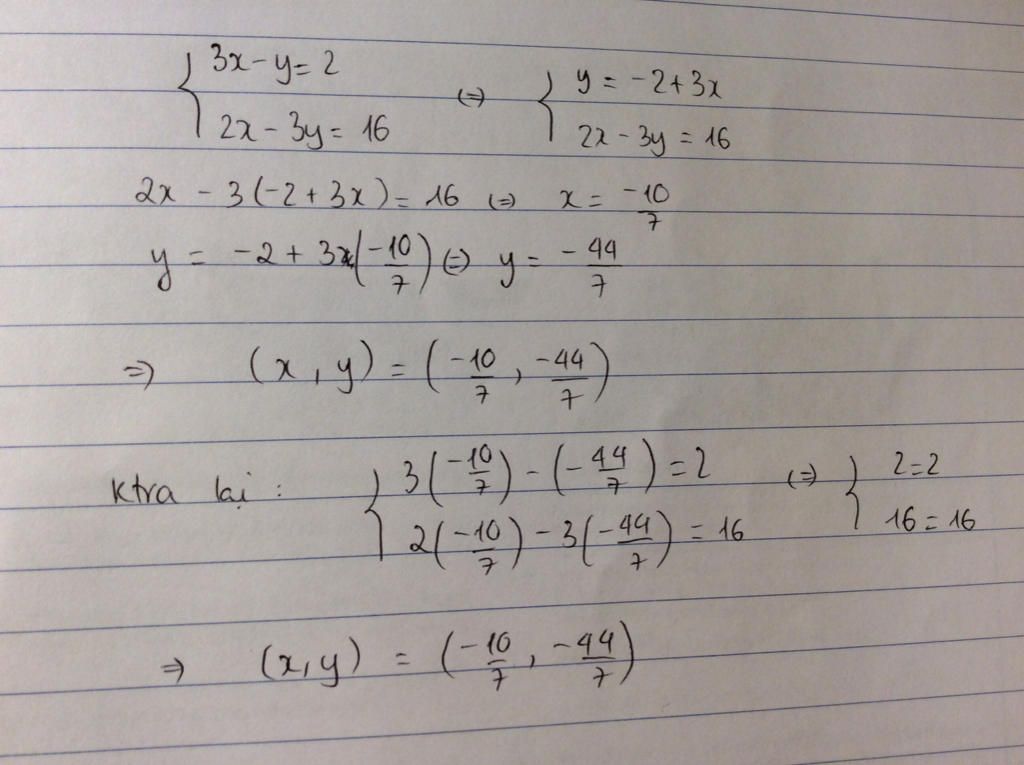 { 3x - y = 2 (=) { y = -2 + 3x
2x - 3y = 16 2x - 3y = 16
2x - 3(-2 + 3x) = 16 (=) x = -10/7
y = -2 + 3x(-10/7) (=) y = -44/7
=) (x, y) = (-10/7, -44/7)
Ktra lại : { 3(-10/7) - (-44/7) = 2 (=) { 2=2
2(-10/7) - 3(-44/7) = 16 16 = 16
=) (x, y) = (-10/7, -44/7)